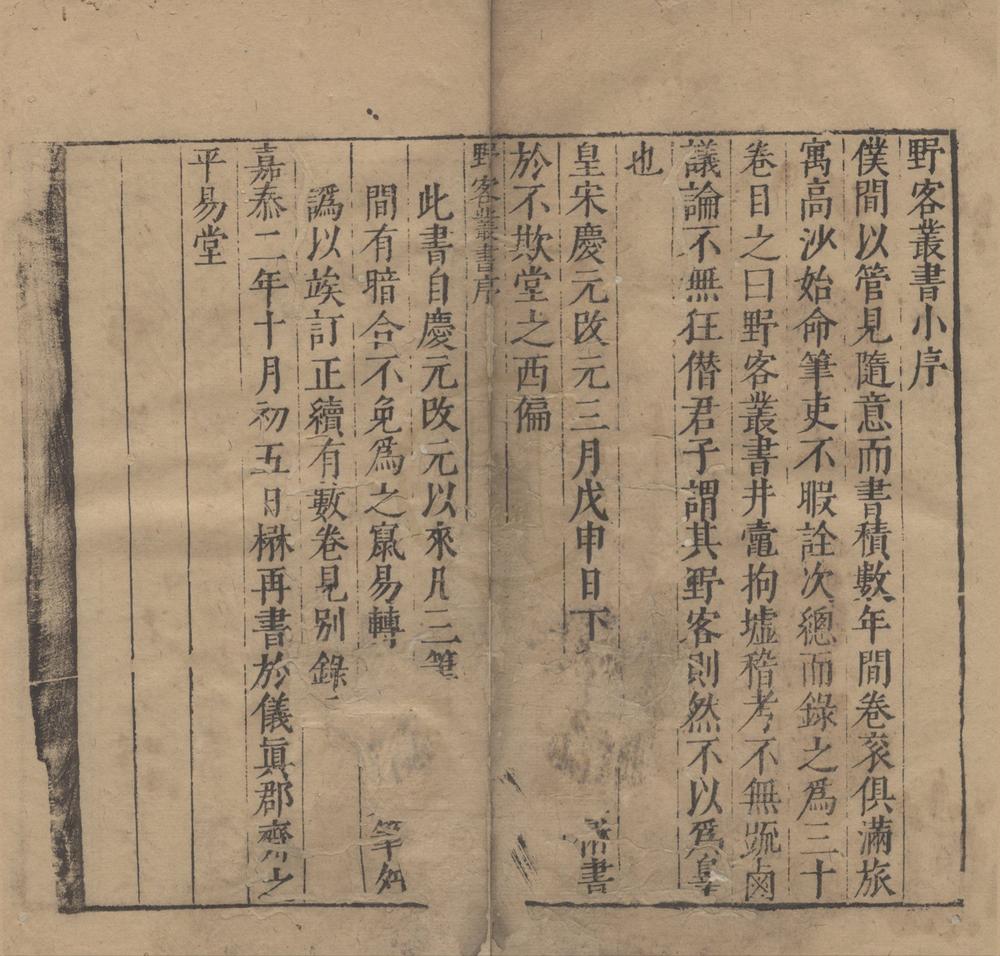 野客叢書小序
僕間以管見隨意而書積數年間卷袠俱滿旅
寓高沙始命筆吏不暇詮次總而錄之爲三十
卷目之曰野客叢書井鼃拘墟稽考不無疏鹵
議論不無狂僭君子謂其野客則然不以爲辠
也
皇宋慶元改元三月戊申日下書
於不欺堂之西偏
野客叢書序
此書自慶元改元以來凡三筆
間有暗合不免爲之竄易轉筆
譌以竢訂正續有數卷見別錄
嘉泰二年十月初五日楙再書於儀眞郡齋之
平易堂